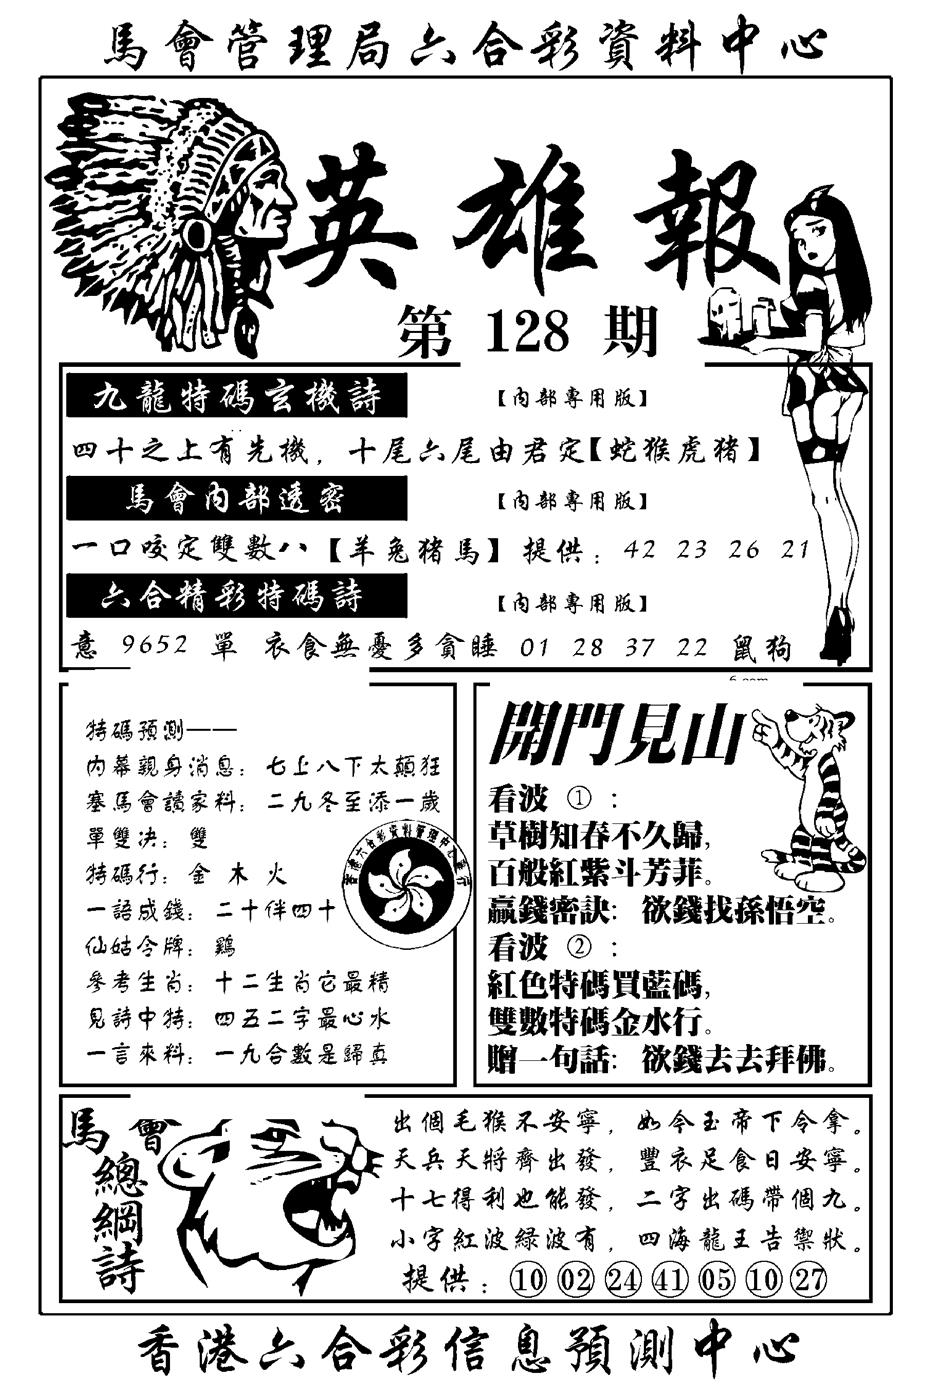 馬會管理局六合彩資料中心
英雄報
第 128 期
九龍特碼玄機詩 【內部專用版】
四十之上有先機，十尾六尾由君定【蛇猴虎猪】
馬會內部透密 【內部專用版】
一口咬定雙數八【羊兔猪馬】 提供：42 23 26 21
六合精彩特碼詩 【內部專用版】
意 9652 單 衣食無憂多貪睡 01 28 37 22 鼠狗
特碼預測——
內幕親身消息：七上八下太顛狂
塞馬會讀家料：二九冬至添一歲
單雙决：雙
特碼行：金 木 火
一語成錢：二十伴四十
仙姑令牌：鷄
參考生肖：十二生肖它最精
見詩中特：四五二字最心水
一言來料：一九合數是歸真
開門見山
看波 ①：
草樹知春不久歸，
百般紅紫斗芳菲。
贏錢密訣：欲錢找孫悟空。
看波 ②：
紅色特碼買藍碼，
雙數特碼金水行。
贈一句話：欲錢去去拜佛。
馬會
總綱詩
出個毛猴不安寧，如今玉帝下令拿。
天兵天將齊出發，豐衣足食日安寧。
十七得利也能發，二字出碼帶個九。
小字紅波綠波有，四海龍王告禦狀。
提供：⑩ 02 24 41 05 ⑩ 27
香港六合彩信息預測中心